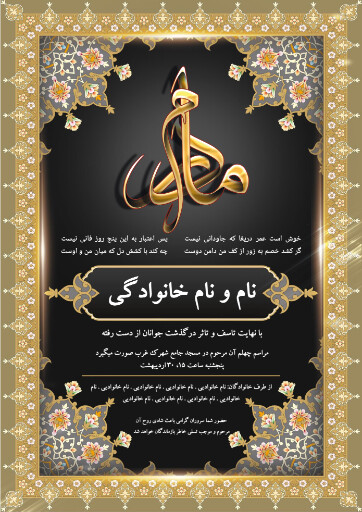 مادر
خوش است عمر دریغا که جاودانی نیست
پس اعتبار به این پنج روز فانی نیست
گر کشد خصم به زور از کف من دامن دوست
چه کند با کشش دل که میان من و اوست
نام و نام خانوادگی
با نهایت تاسف و تاثر درگذشت جوانان از دست رفته
مراسم چهلم آن مرحوم در مسجد جامع شهرک غرب صورت میگیرد
پنجشنبه ساعت ۱۵، ۳۰ اردیبهشت
از طرف خانوادگان: نام خانوادیی . نام خانوادیی . نام خانوادیی . نام خانوادیی . نام
خانوادیی . نام خانوادیی . نام خانوادیی . نام خانوادیی
حضور شما سروران گرامی باعث شادی روح آن
مرحوم و موجب تسلی خاطر بازماندگان خواهد شد